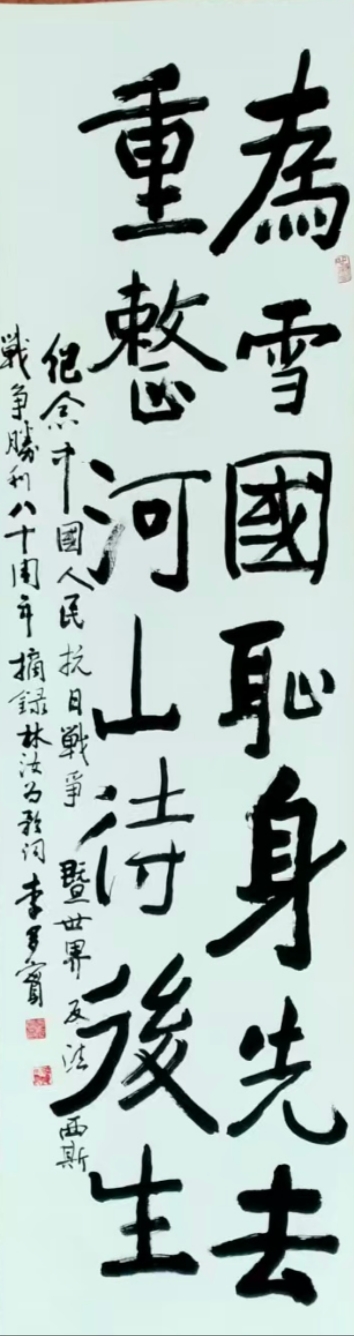 為雪國恥身先去
重整河山待後生
紀念中國人民抗日戰爭暨世界反法西斯
戰爭勝利八十周年摘録林汝为歌词李